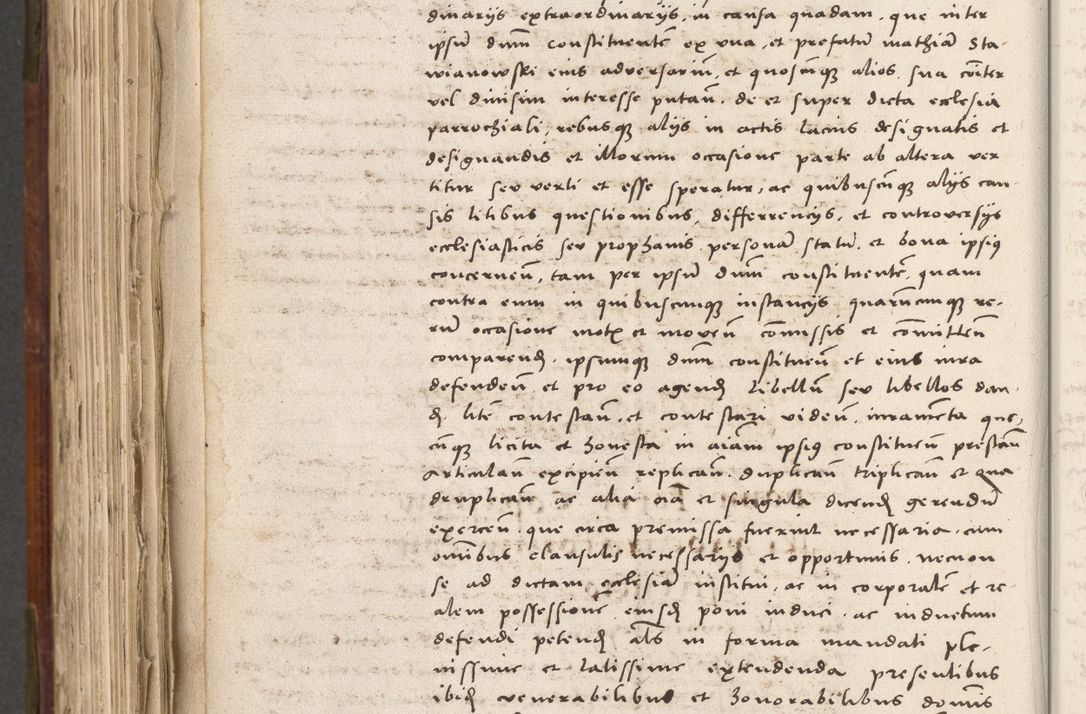 dinarijs extraordinarijs, in causa quadam, que inter
ipsū dnm̄ constituentē ex una, et prefatū mathiā Sta-
wianowski eius adversariū, et quoscūq̄ alios sua cōiter
vel divisim interesse putan̄. de et super dicta ecclesia
parrochiali, rebusq̄ alijs in actis lacius designatis et
designandis et illorum occasione parte ab altera ver
titur seu verti et esse speratur, ac quibuscūq̄ alijs cau-
sis litibus questionibus, differrencijs, et controversijs
ecclesiasticis seu prophanis personā statū et bona ipsiꝯ
concernen̄, tam per ipsū dnm̄ constituentē, quam
contra eum in quibuscunque instancijs quarūcunque re-
rū occasione motꝭ et moven̄ cōmissis et cōmitten̄
comparend̄, ipsumq̄ dnm̄ constituen̄ et eius iura
defenden̄, et pro eo agend̄ libellū seu libellos dan-
d̄, litē contestan̄, et contestari viden̄, iuramēta que-
cūq̄ licita et honesta in aīam ipsiꝯ constituen̄ prestan̄
Articulan̄ excipien̄ replican̄, duplican̄ triplican̄ et qua
druplican̄ ac alia oīa et singula dicend̄ gerendū
exercen̄, que circa premissa fuerint necessaria, cum
omībus clausulis necessarijs et opportunis, necnon
se ad dictam ecclesiā institui, ac in corporalē et re-
alem possessionē eiusd̄ poni induci, ac inductum
defendi petend̄ als̄ in forma mandati ple-
nissime et latissime extendenda presentibus
ibid̄ venerabilibus et honorabilibus domīs